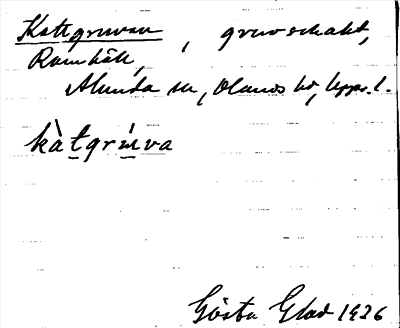 Kattgruvan, gruvschakt,
Ramhäll,
Alunda sn, Olands hd, Upps. l.
kàt̲grú̲va
Gösta Glad 1926